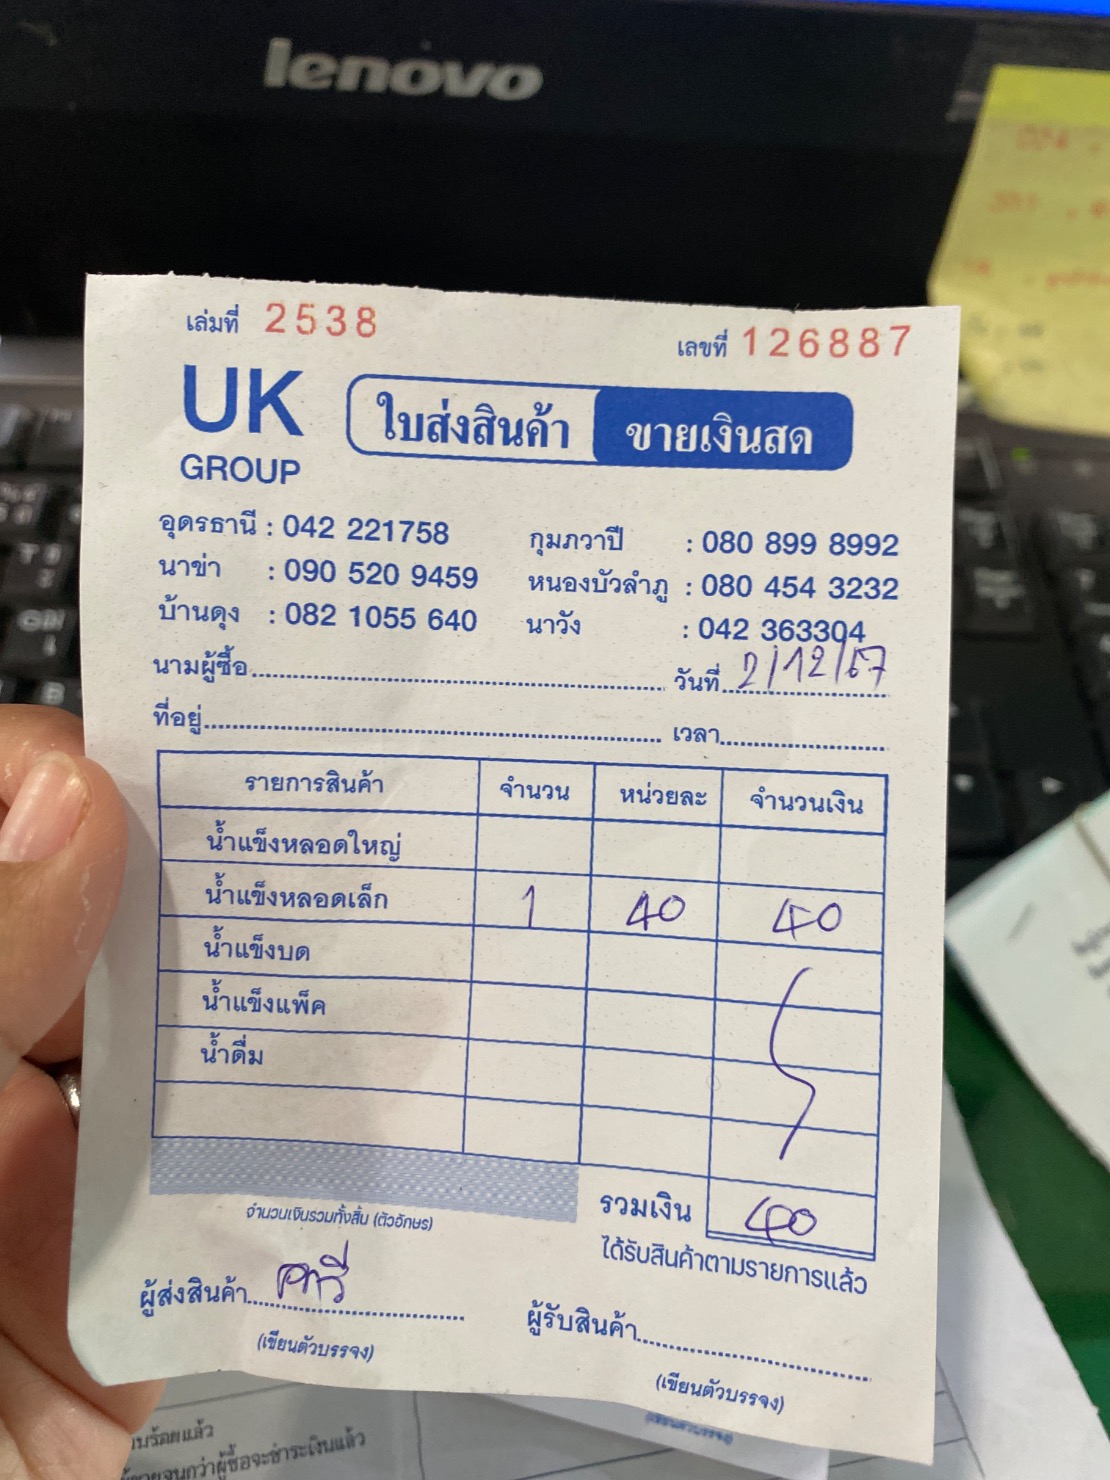 lenovo
เล่มที่ 2538
เลขที่ 126887
UK
GROUP
ใบส่งสินค้า ขายเงินสด
อุดรธานี : 042 221758 กุมภวาปี : 080 899 8992
นาข่า : 090 520 9459 หนองบัวลำภู : 080 454 3232
บ้านดุง : 082 1055 640 นาวัง : 042 363304
นามผู้ซื้อ วันที่ 2/12/67
ที่อยู่ เวลา
รายการสินค้า จำนวน หน่วยละ จำนวนเงิน
น้ำแข็งหลอดใหญ่
น้ำแข็งหลอดเล็ก 1 40 40
น้ำแข็งบด
น้ำแข็งแพ็ค
น้ำดื่ม
รวมเงิน 40
จำนวนเงินรวมทั้งสิ้น (ตัวอักษร)
ได้รับสินค้าตามรายการแล้ว
ผู้ส่งสินค้า ผู้รับสินค้า
(เขียนตัวบรรจง) (เขียนตัวบรรจง)
(เขียนตัวบรรจง)
ผู้ขายจนกว่าผู้ซื้อจะชำระเงินแล้ว